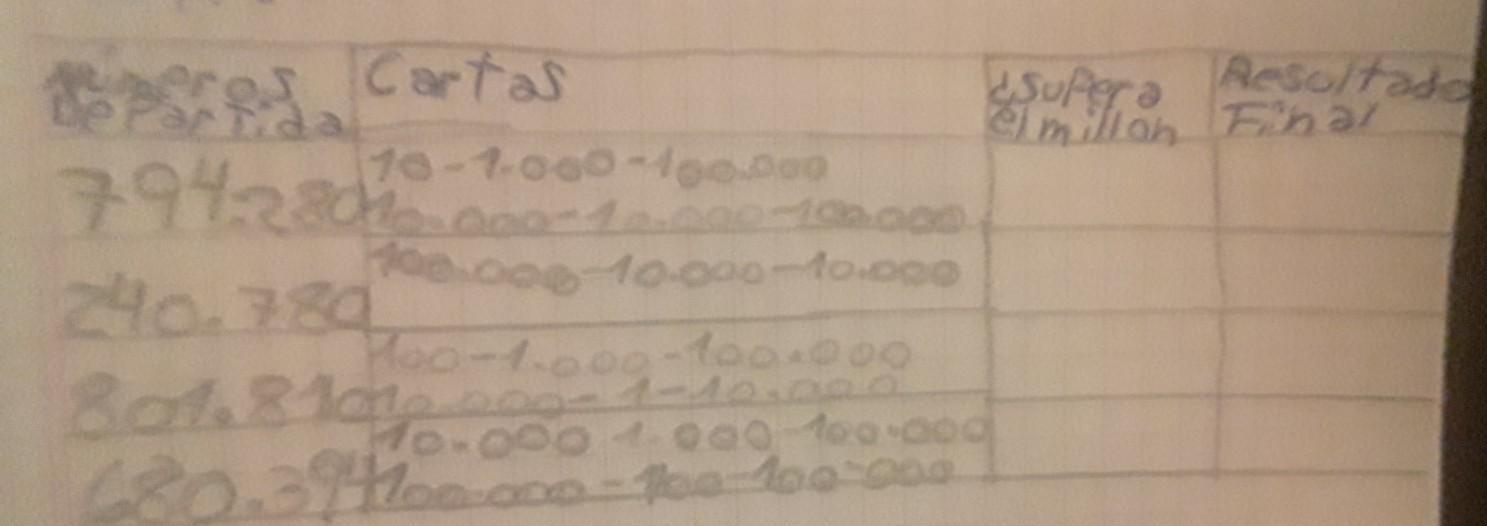 Números De Partida	Cartas	¿Supera el millon	Resultado Final
794.280	10-1.000-100.000
10.000-10.000-100.000
240.780	100.000-10.000-10.000
801.810	100-1.000-100.000
10.000-1-10.000
680.394	10.000 1.000 100.000
100.000-100-100.000